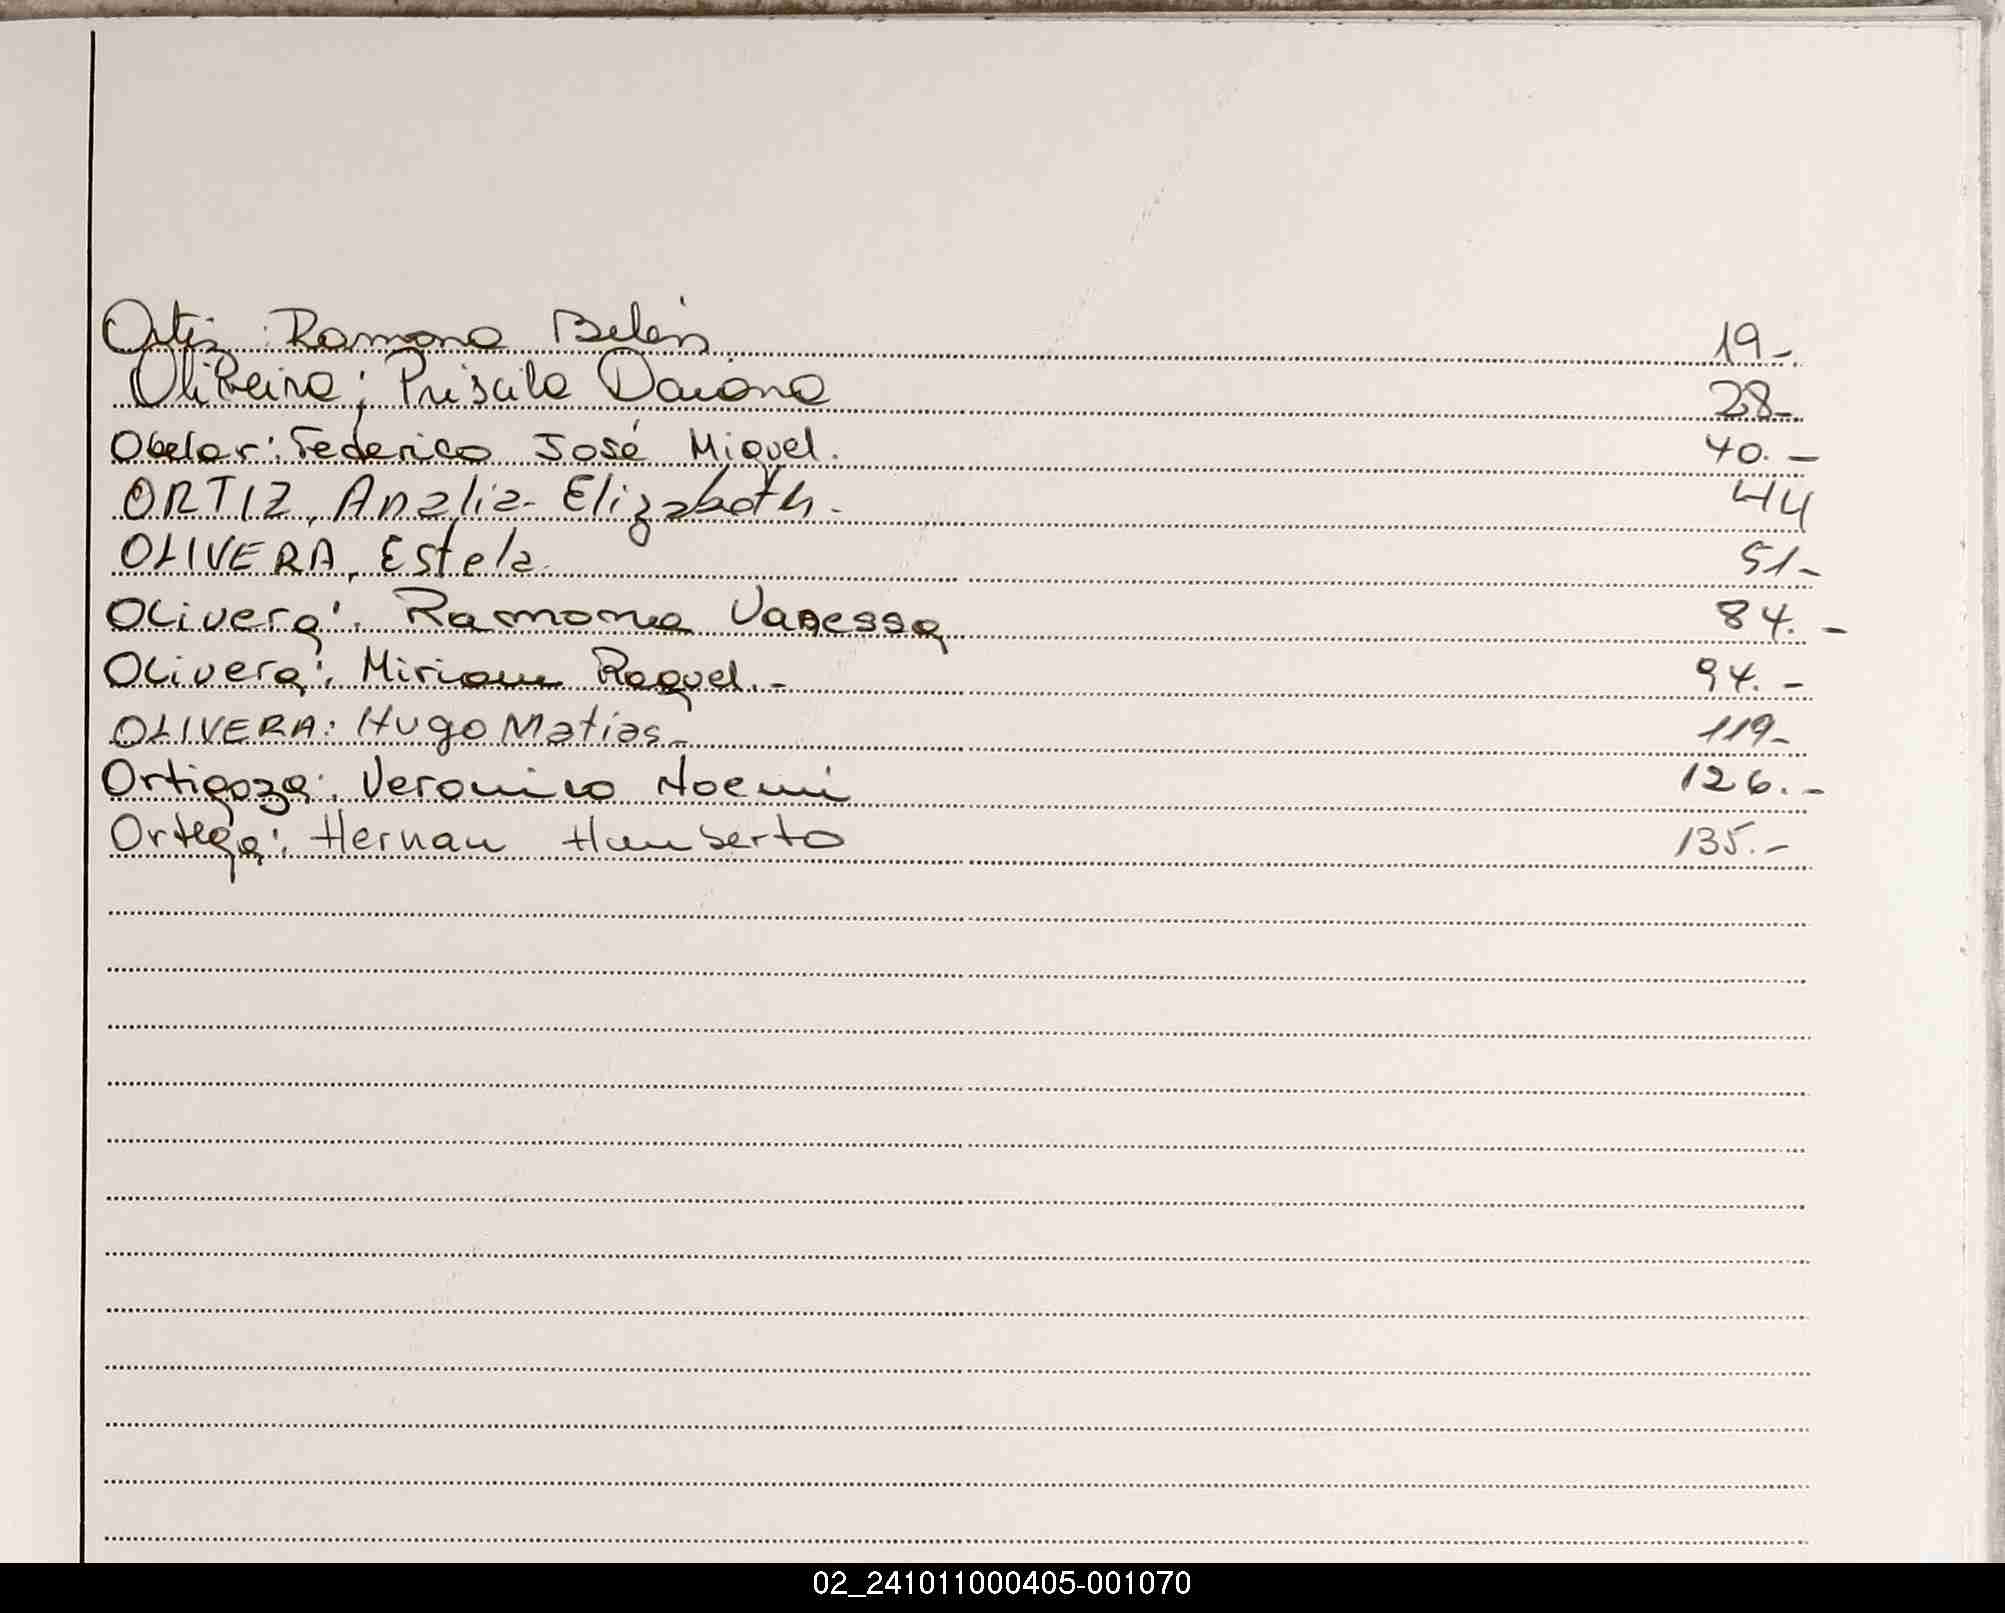 Ortiz: Ramona Belén 19.-
Olibeira; Priscila Daiana 28-
Obelar: Federico José Miguel. 40.-
ORTIZ, Analia Elizabeth. 44
OLIVERA, Estela. 51-
Olivera: Ramona Vanessa 84.-
Olivera: Miriam Raquel.- 94.-
OLIVERA: Hugo Matias- 119-
Ortigoza: Veronica Noemi 126.-
Ortega: Hernan Humberto 135.-
02_241011000405-001070